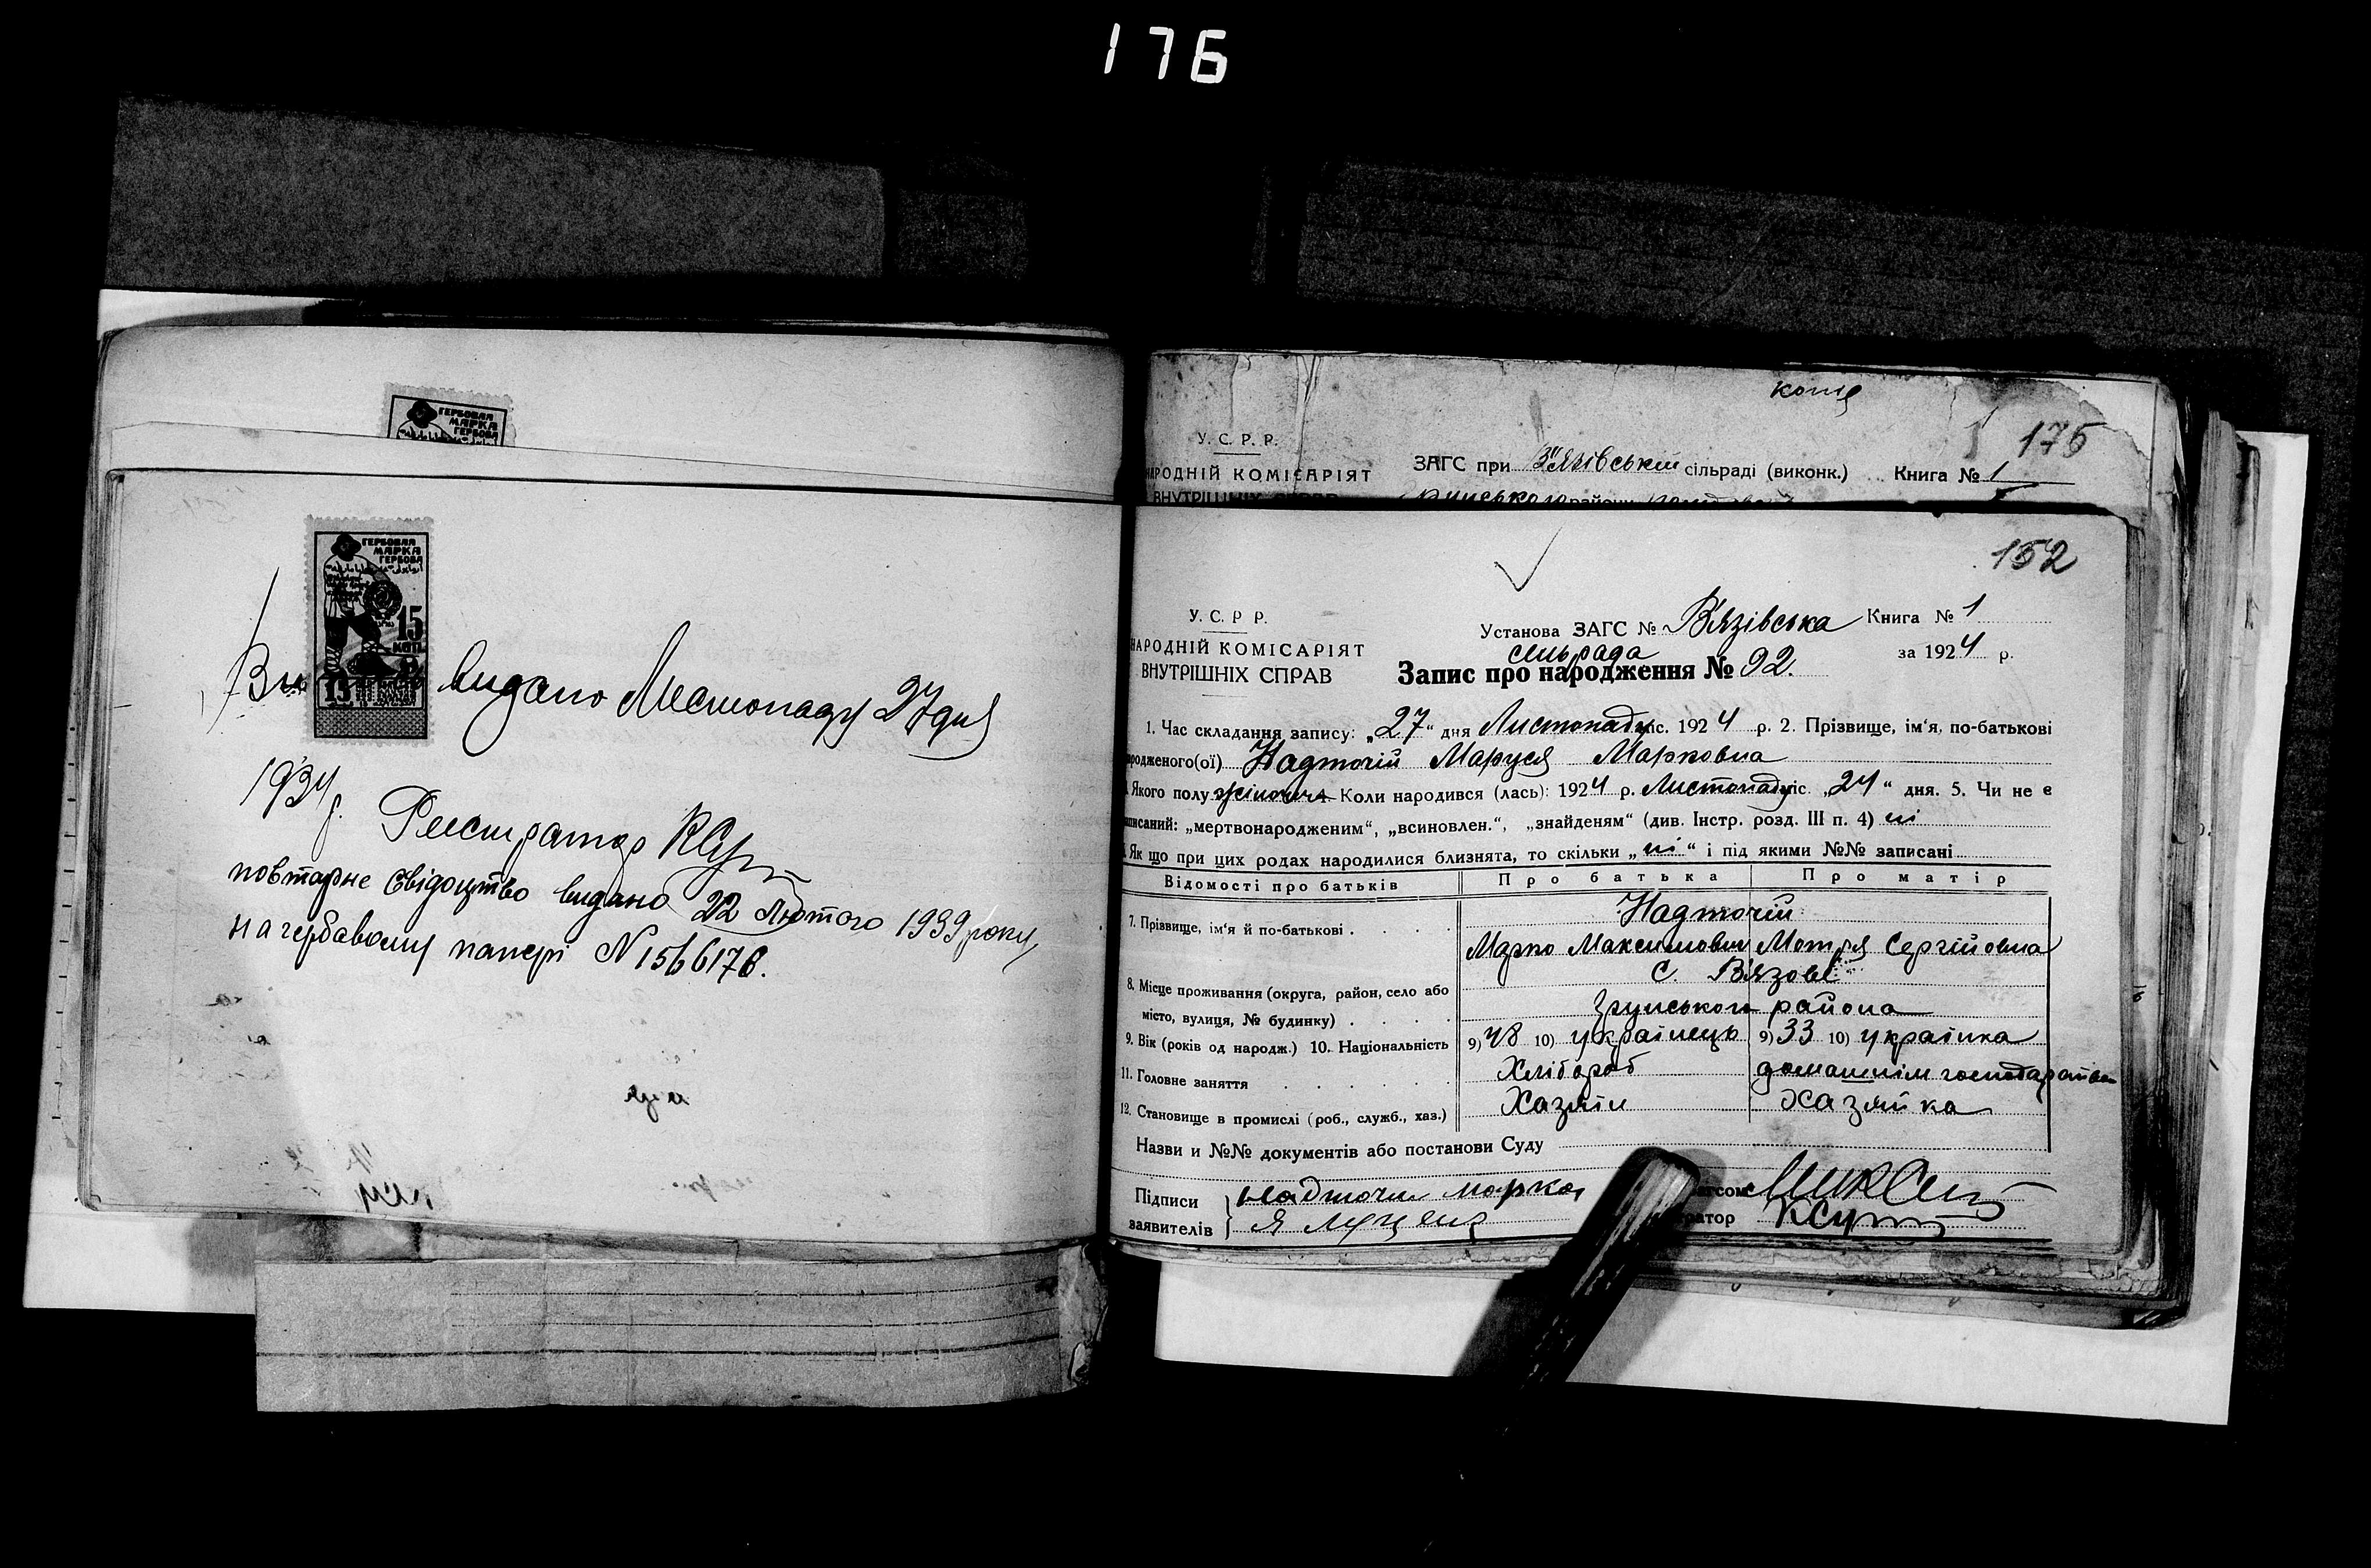 176
ГЕРБОВАЯ
МАРКА
ГЕРБОВА
ГЕРБОВАЯ
МАРКА
ГЕРБОВА
15
КОП.
15
видано Листопаду 27 дня
1934 р.
Реєстратор
повтарне свідоцтво видано 22 Лютого 1939 року,
на гербавому папері N 1566176.
копія
175
У. С. Р. Р.
НАРОДНІЙ КОМІСАРІЯТ
ВНУТРІШНІХ СПРАВ
ЗАГС при В'язівській сільраді (виконк.) Книга № 1
152
У. С. Р Р.
НАРОДНІЙ КОМІСАРІЯТ
ВНУТРІШНІХ СПРАВ
Установа ЗАГС № В'язівська Книга № 1
сільрада за 1924 р.
Запис про народження № 92.
1. Час складання запису: „27“ дня Листопаду міс. 1924 р. 2. Прізвище, ім'я, по-батькові
родженого(ої) Надточій Маруся Марковна
Якого полу жіночого 4. Коли народився (лась): 1924 р. Листопаду міс. „24“ дня. 5. Чи не є
записаний: „мертвонародженим“, „всиновлен.“, „знайденям“ (див. Інстр. розд. III п. 4) ні
Як що при цих родах народилися близнята, то скільки „ні“ і під якими №№ записані
Відомості про батьків Про батька Про матір
7. Прізвище, ім'я й по-батькові . . . . Надточій
Марко Максимович Мотря Сергійовна
8. Місце проживання (округа, район, село або місто, вулиця, № будинку) . . . . С. В'язове
району
9. Вік (років од народж.) 10. Національність 9) 48 10) українець 9) 33 10) українка
11. Головне заняття . . . . . . Хлібороб домашнім господарством
12. Становище в промислі (роб., служб., хаз.) Хазяін Хазяйка
Назви и №№ документів або постанови Суду
Підписи Надточий Марко
заявителів